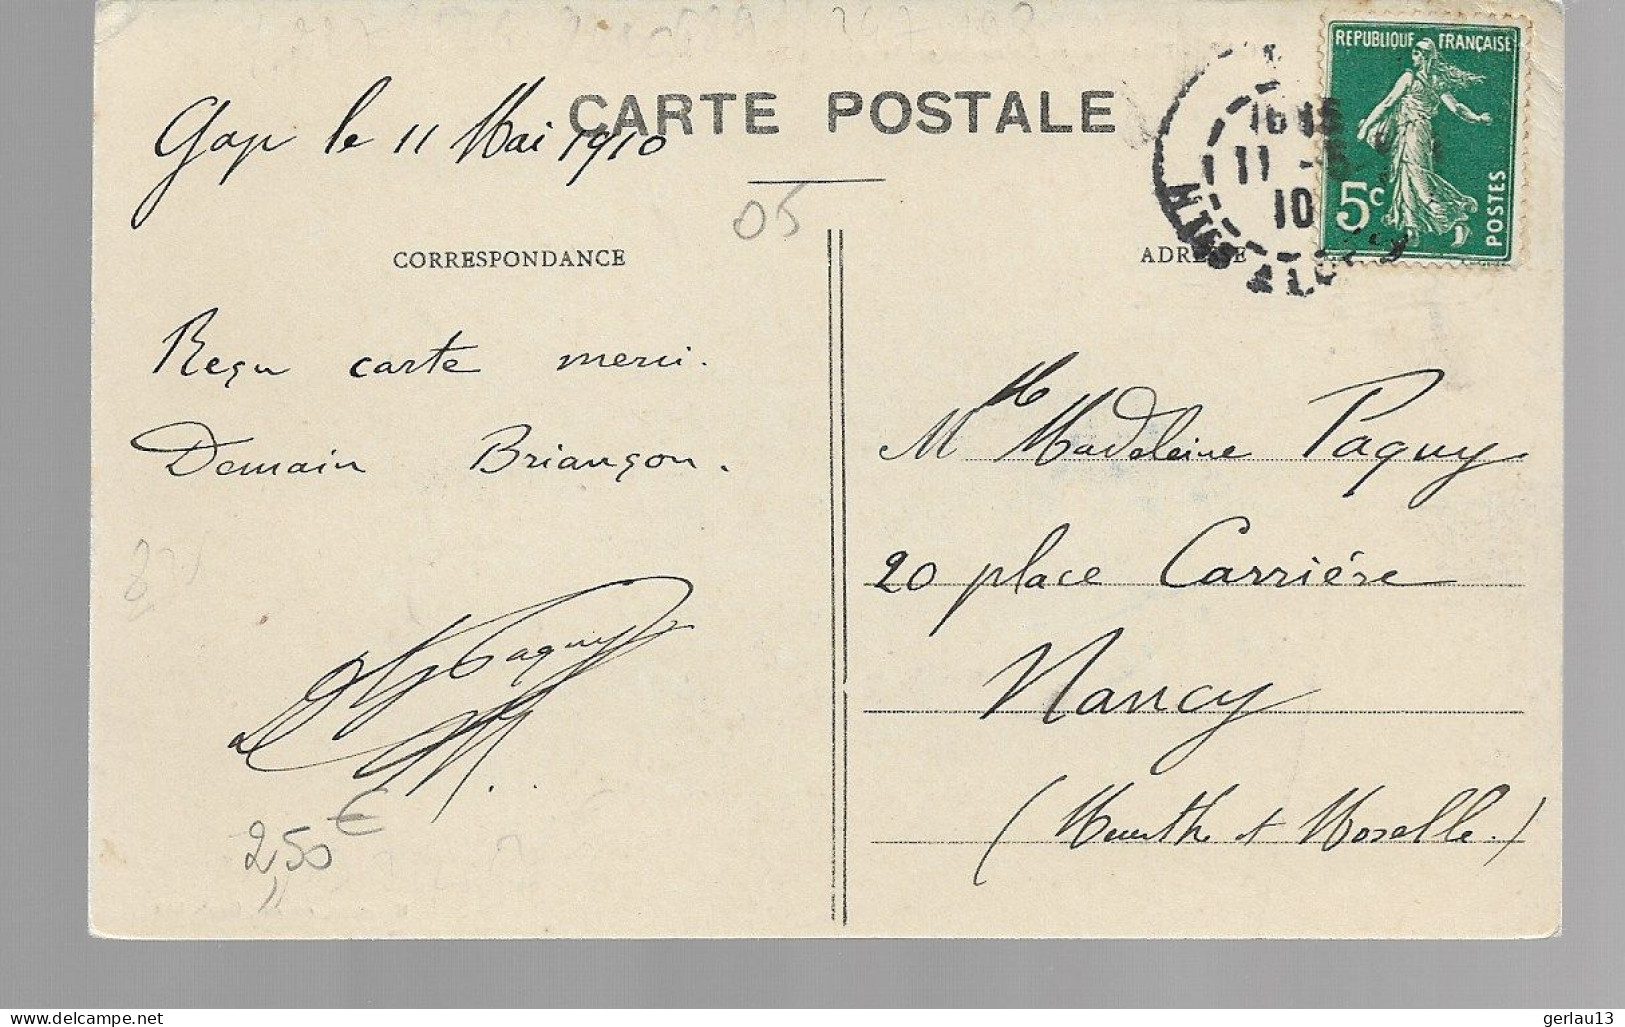 CARTE POSTALE
Gap le 11 Mai 1910
05
CORRESPONDANCE
Reçu carte merci.
Demain Briançon.
Paquy
2,50 €
REPUBLIQUE FRANÇAISE
5c
POSTES
11 - 5
10
HTES ALPES
ADRESSE
Mlle Madeleine Paquy
20 place Carrière
Nancy
(Meurthe et Moselle.)
www.delcampe.net
gerlau13